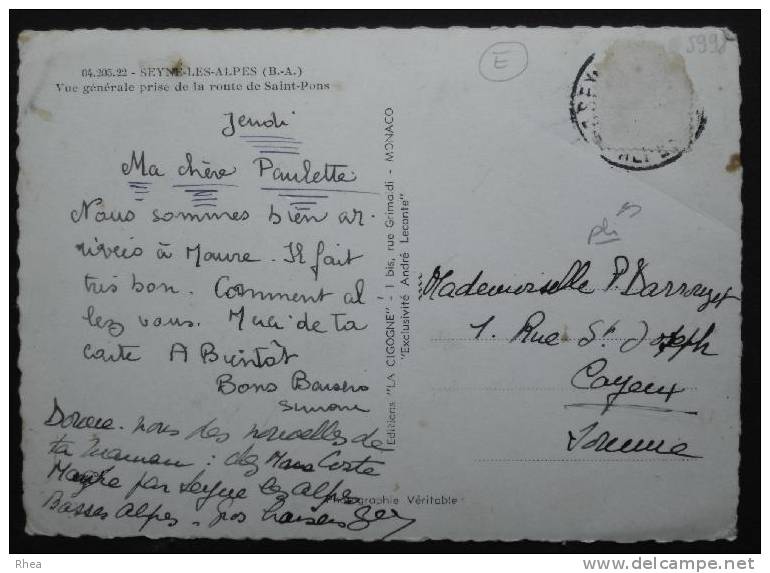 04.205.22 - SEYNE-LES-ALPES (B.-A.)
Vue générale prise de la route de Saint-Pons
Jeudi
Ma chère Paulette
Nous sommes bien ar-
riveis à Maure. Il fait
très bon. Comment al
lez vous. Merci de ta
carte A Bientôt
Bons Baisers
Simone
Donne-nous des nouvelles de
ta Maman : chez Coste
par Seyne les Alpes
Basses Alpes - Gros baisers
Editions "LA CIGOGNE" - 1 bis, rue Grimaldi - MONACO
"Exclusivité André Leconte"
Photographie Véritable
E
5998
pli
Mademoiselle P. Darrouzet
1. Rue St Joseph
Cayeux
Somme
Rhea
delcampe.net